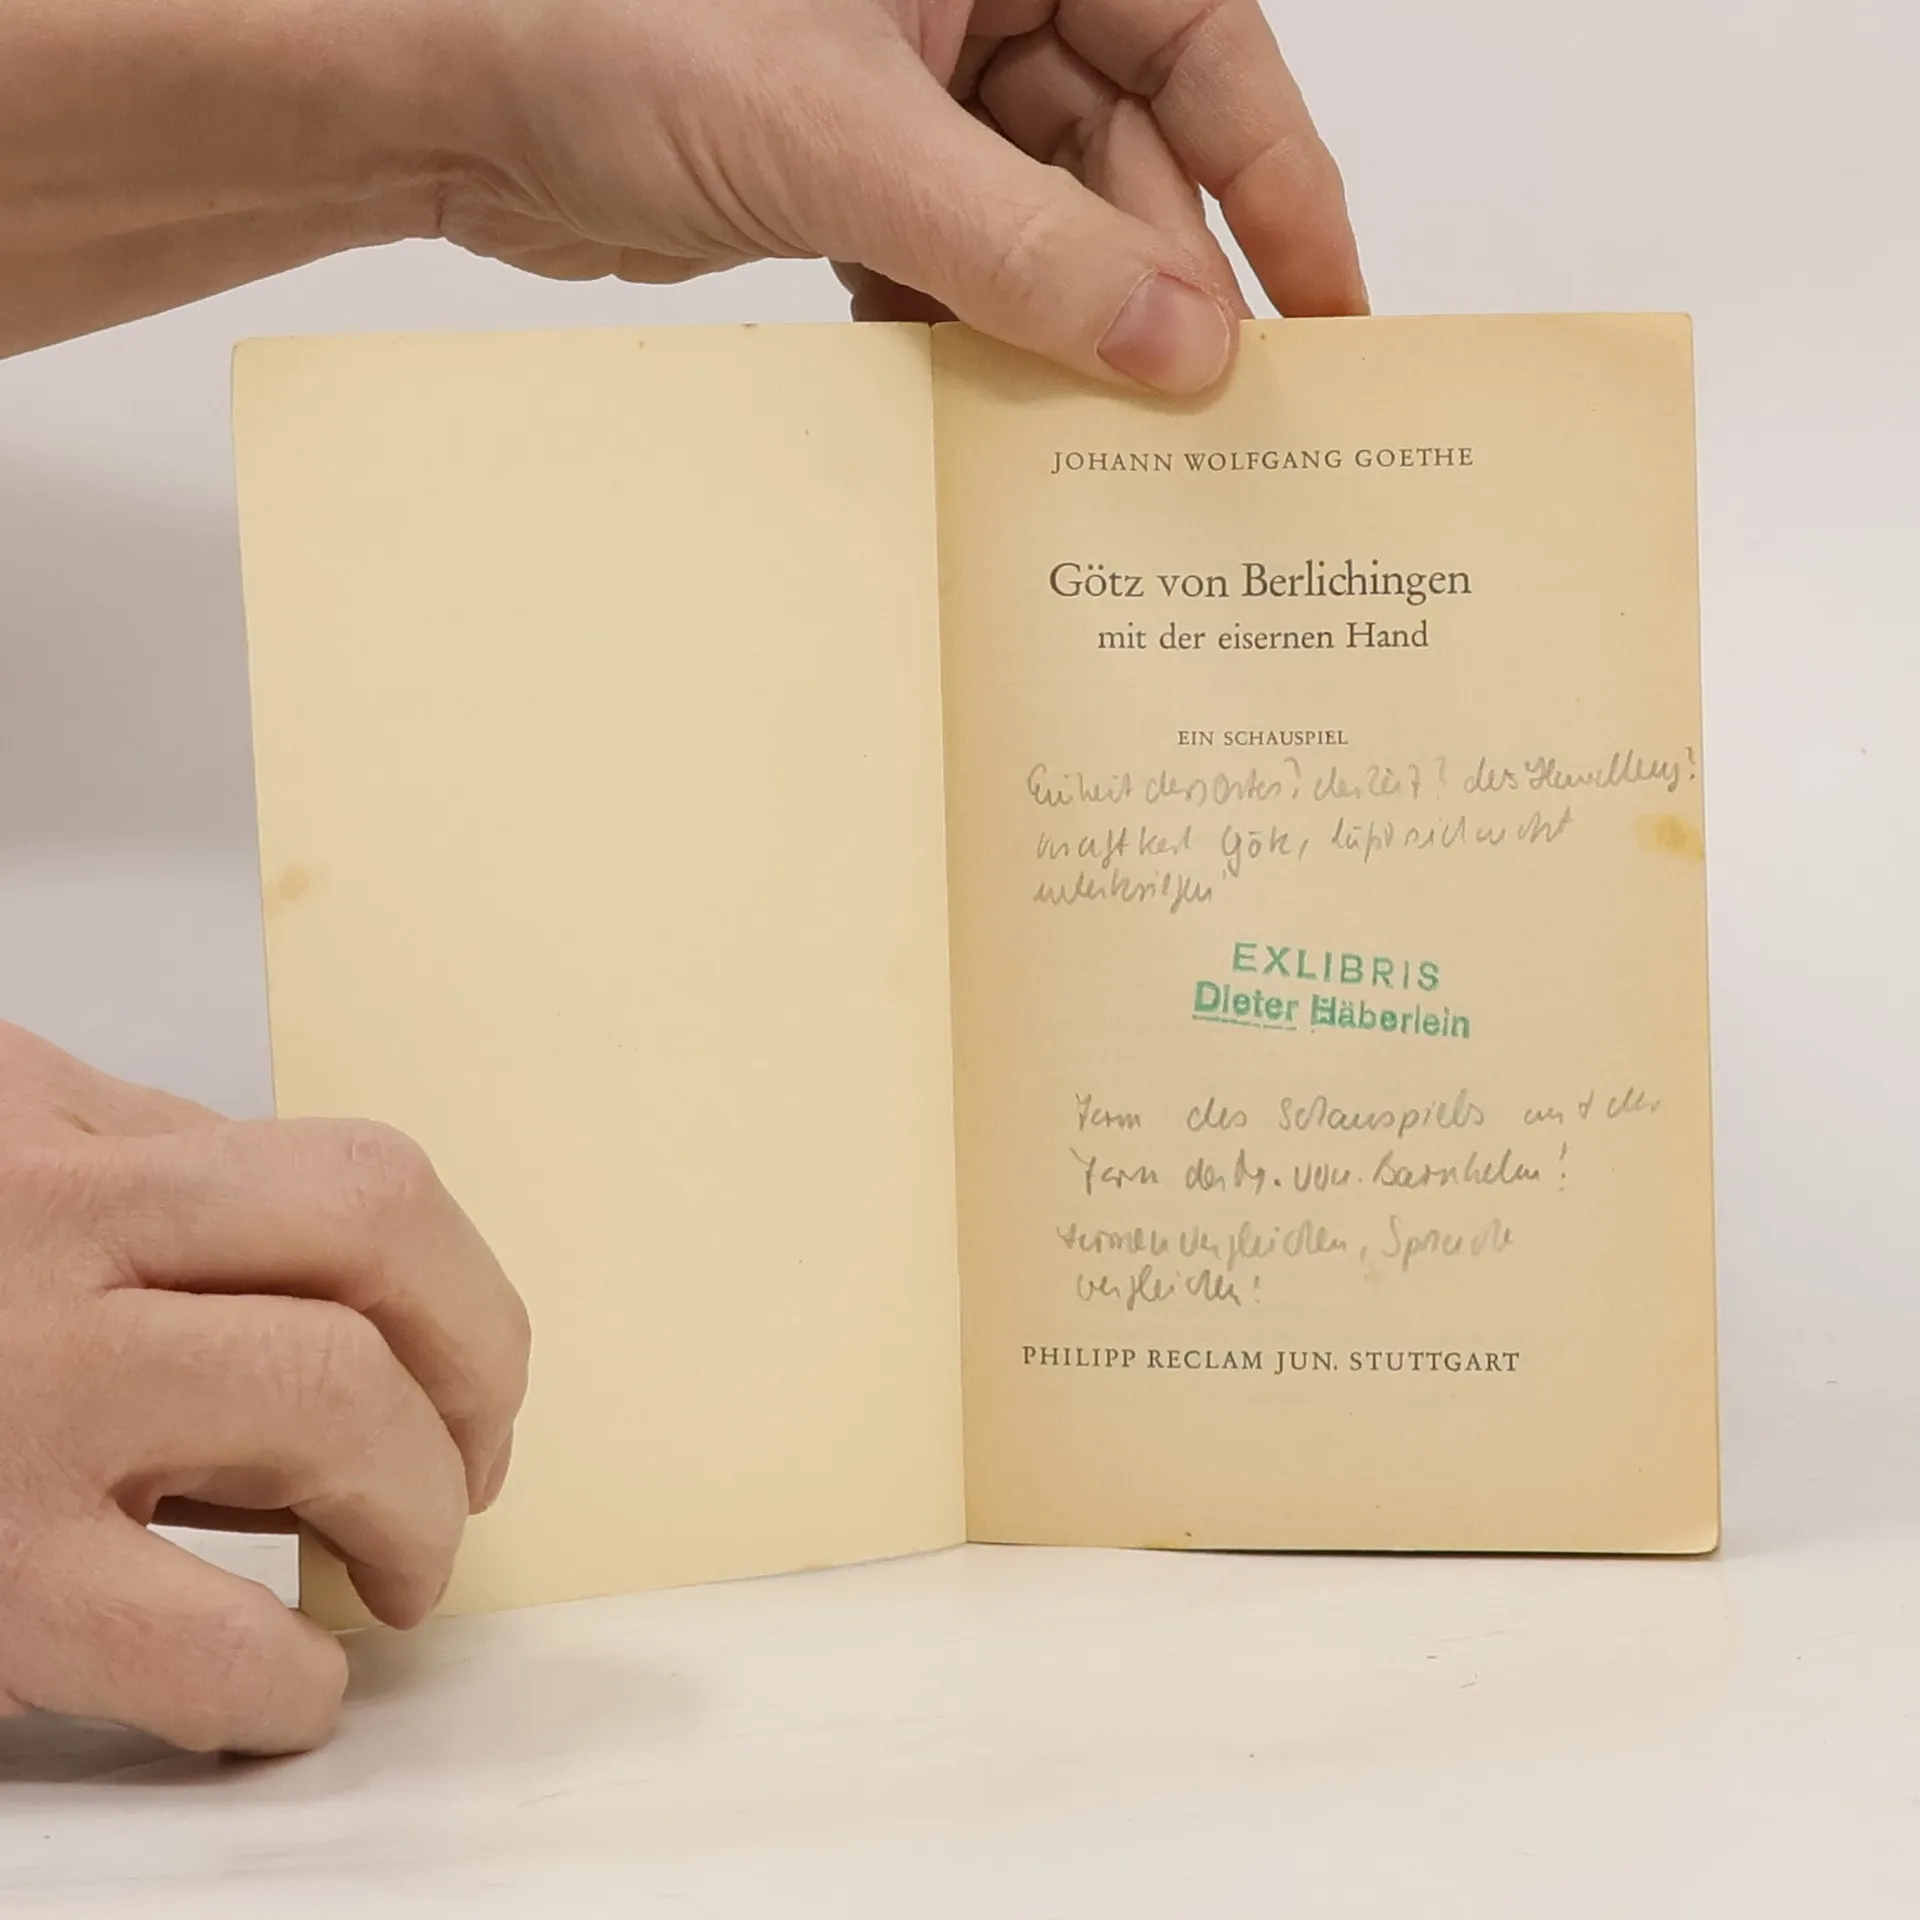 JOHANN WOLFGANG GOETHE
Götz von Berlichingen
mit der eisernen Hand
EIN SCHAUSPIEL
Einheit des Ortes? der Zeit? der Handlung?
Kraftkerl Götz, läßt sich nicht
unterkriegen
EXLIBRIS
Dieter Häberlein
Form des Schauspiels mit der
Form der M. von Barnhelm!
Formen vergleichen, Sprache
vergleichen!
PHILIPP RECLAM JUN. STUTTGART